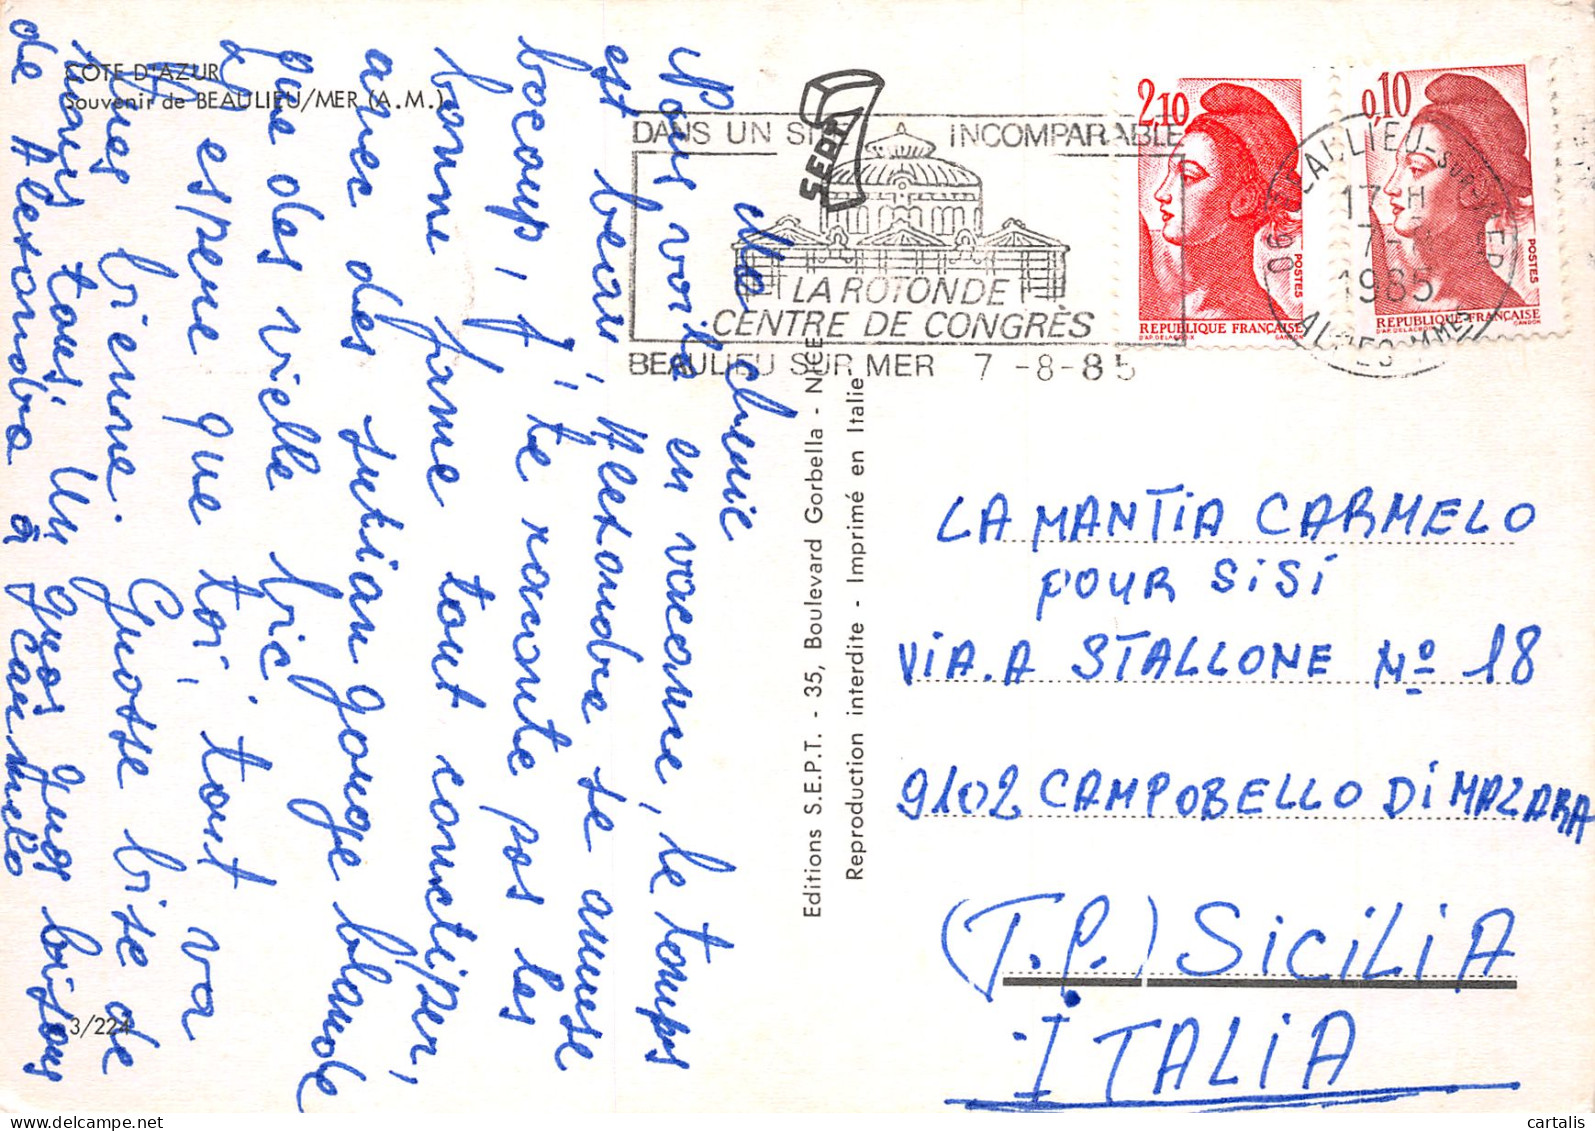 COTE D'AZUR
Souvenir de BEAULIEU/MER (A.M.)
Ma cherie
Nous voila en vacanse, le temps
est beau, Alexandre se amuse
bocoup, j', te raconte pas les
bonne fame tout conctiper,
avec des sutian gorge blande
pire des vielle bic!
J' espere que toi, tout va
tues bienne. Grosse bise de
nous tous. Un gros gros bisous
de Alexandra à Carmelo
3/224
SEPT
Editions S.E.P.T. - 35, Boulevard Gorbella - NICE
Reproduction interdite - Imprimé en Italie
DANS UN SITE INCOMPARABLE
LA ROTONDE
CENTRE DE CONGRÈS
BEAULIEU SUR MER 7 -8-85
2,10
POSTES
REPUBLIQUE FRANÇAISE
D'AP. DELACROIX GANDON
0,10
POSTES
REPUBLIQUE FRANÇAISE
D'AP. DELACROIX GANDON
06 BEAULIEU-SUR-MER
17 H
7-8
1985
ALPES-MMES
LA MANTIA CARMELO
POUR SISI
VIA.A STALLONE Nº 18
9102 CAMPOBELLO DI MAZARA
(T.P.) SICILIA
ITALIA
cartalis